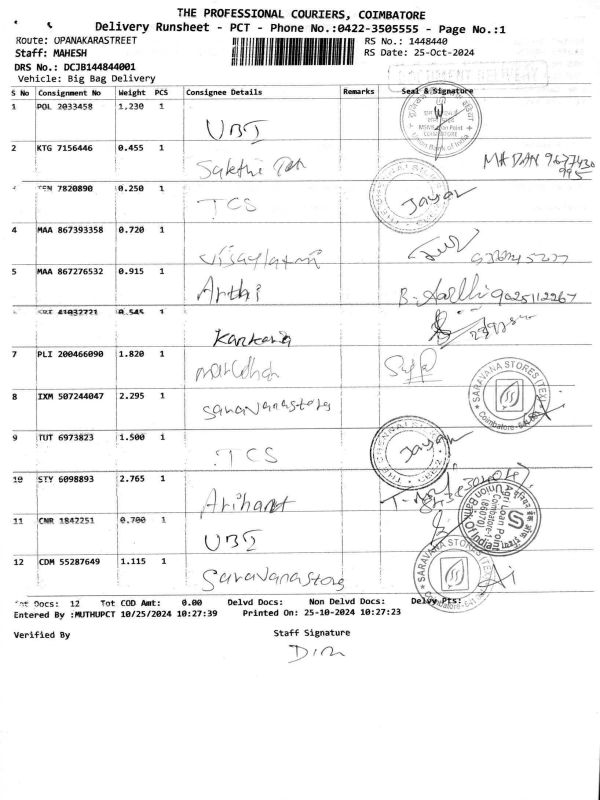 THE PROFESSIONAL COURIERS, COIMBATORE
Delivery Runsheet - PCT - Phone No.:0422-3505555 - Page No.:1
Route: OPANAKARASTREET RS No.: 1448440
Staff: MAHESH RS Date: 25-Oct-2024
DRS No.: DCJB144844001
Vehicle: Big Bag Delivery
S No Consignment No Weight PCS Consignee Details Remarks Seal & Signature
1 POL 2033458 1,230 1
UBI
2 KTG 7156446 0.455 1
Sakthi
MADAN
7820890 0.250 1
TCS Jayan
4 MAA 867393358 0.720 1
Vijaylaxmi
5 MAA 867276532 0.915 1
Arthi 9025112267
41032721 0.545 1
Kankaria
7 PLI 200466090 1.820 1
8 IXM 507244047 2.295 1
saravanastores
SARAVANA STORES (TEX)
Coimbatore-641
9 TUT 6973823 1.500 1
TCS Jayan
10 STY 6098893 2.765 1
Arihant
11 CNR 1842251 0.700 1
UBI
Agri Loan Point
Coimbatore
(86070)
Union Bank of India
12 CDM 55287649 1.115 1
Saravanastores
SARAVANA STORES
Coimbatore-641
Tot Docs: 12 Tot COD Amt: 0.00 Delvd Docs: Non Delvd Docs: Delvy Pts:
Entered By :MUTHUPCT 10/25/2024 10:27:39 Printed On: 25-10-2024 10:27:23
Verified By Staff Signature